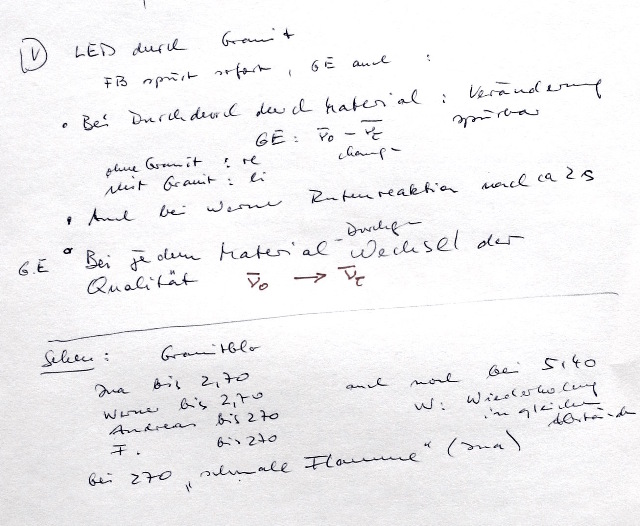 V LED durch Granit
FB spürt sofort, GE auch :
• Bei Durchdruch durch Material : Veränderung
spürbar
GE: ν̅o – ν̅τ
ohne Granit : re
mit Granit : li
• Auch bei Werner Rutenreaktion nach ca 2 s
G.E • Bei jedem Material- Durchgang Wechsel der
Qualität ν̅o → ν̅τ
Sehen: Granitblo
Ina bis 2,70
auch noch bei 5,40
Werner bis 2,70
W: Wiederholung
Andreas bis 270
in gleichen
Abständen
F. bis 270
bei 270 „schmale Flamme“ (Ina)